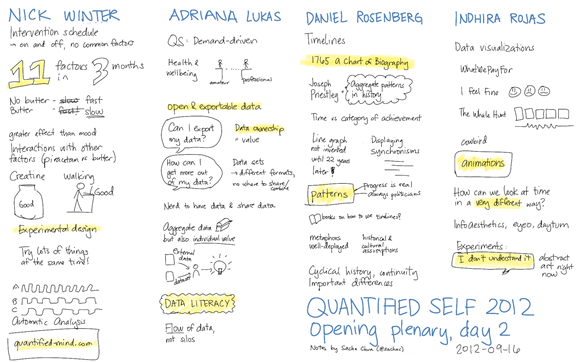 NICK WINTER
Intervention schedule
→ on and off, no common factors
11 factors in 3 months
No butter - slow fast
Butter - fast! slow
greater effect than mood
Interactions with other
factors (piracetam vs butter)
Creatine walking
Good
Good
Experimental design
Try lots of things
at the same time!
A
B
C
Automatic Analysis
quantified-mind.com
ADRIANA LUKAS
QS: Demand-driven
Health &
wellbeing
amateur professional
open & exportable data
Can I export
my data?
Data ownership
= value
How can I
get more out
of my data?
Data sets
→ different formats,
no where to share/
Need to have data & share data
Aggregate data
but also individual value
external
data
dataset
DATA LITERACY
Flow of data,
not silos
DANIEL ROSENBERG
Timelines
1765 A Chart of Biography
Joseph
Priestley
Aggregate patterns
in history
Time vs category of achievement
Line graph
not invented
until 22 years
later!
Displaying
synchronisms
Patterns
Progress is real
always politicians
books on how to use timelines?
metaphors
well-deployed
historical &
cultural
assumptions
Cyclical history, continuity
Important differences
INDHIRA ROJAS
Data visualizations
WhatWePayFor
I Feel Fine
The Whale Hunt
cowbird
animations
How can we look at time
in a very different way?
Infoaesthetics, eyeo, daytum
Experiments:
I don't understand it
abstract
art right
now
QUANTIFIED SELF 2012
Opening plenary, day 2
Notes by Sacha Chua (@sachac)
2012-09-16